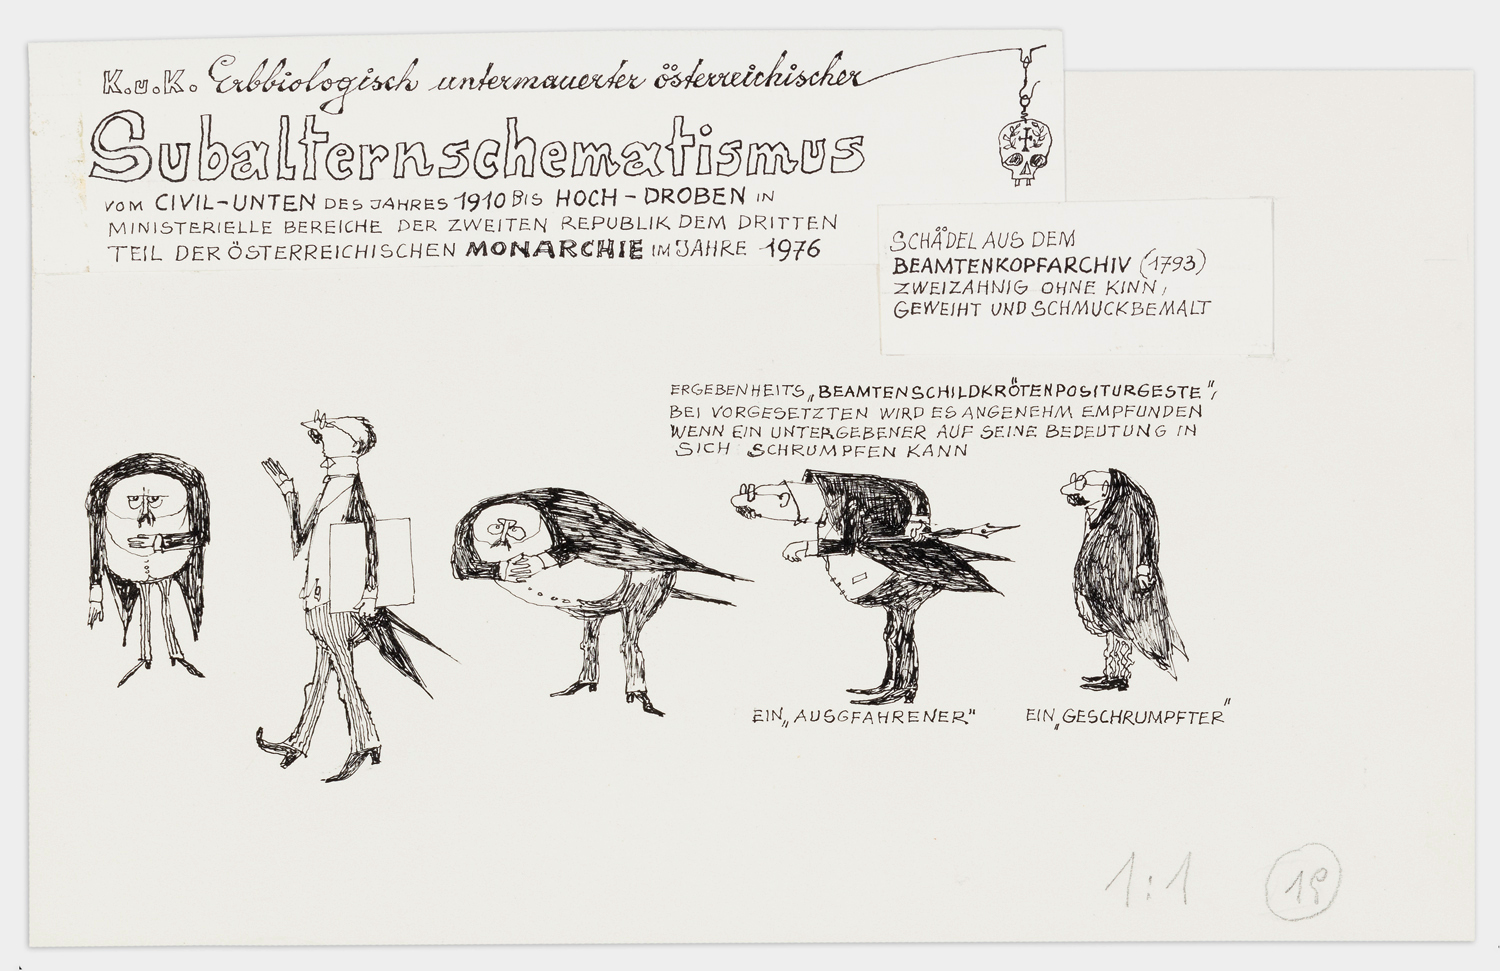 K.u.K. Erbbiologisch untermauerter österreichischer
Subalternschematismus
VOM CIVIL-UNTEN DES JAHRES 1910 BIS HOCH-DROBEN IN
MINISTERIELLE BEREICHE DER ZWEITEN REPUBLIK DEM DRITTEN
TEIL DER ÖSTERREICHISCHEN MONARCHIE IM JAHRE 1976
SCHÄDEL AUS DEM
BEAMTENKOPFARCHIV (1793)
ZWEIZAHNIG OHNE KINN,
GEWEIHT UND SCHMUCKBEMALT
ERGEBENHEITS„BEAMTENSCHILDKRÖTENPOSITURGESTE",
BEI VORGESETZTEN WIRD ES ANGENEHM EMPFUNDEN
WENN EIN UNTERGEBENER AUF SEINE BEDEUTUNG IN
SICH SCHRUMPFEN KANN
EIN „AUSGFAHRENER"
EIN „GESCHRUMPFTER"
1:1
19